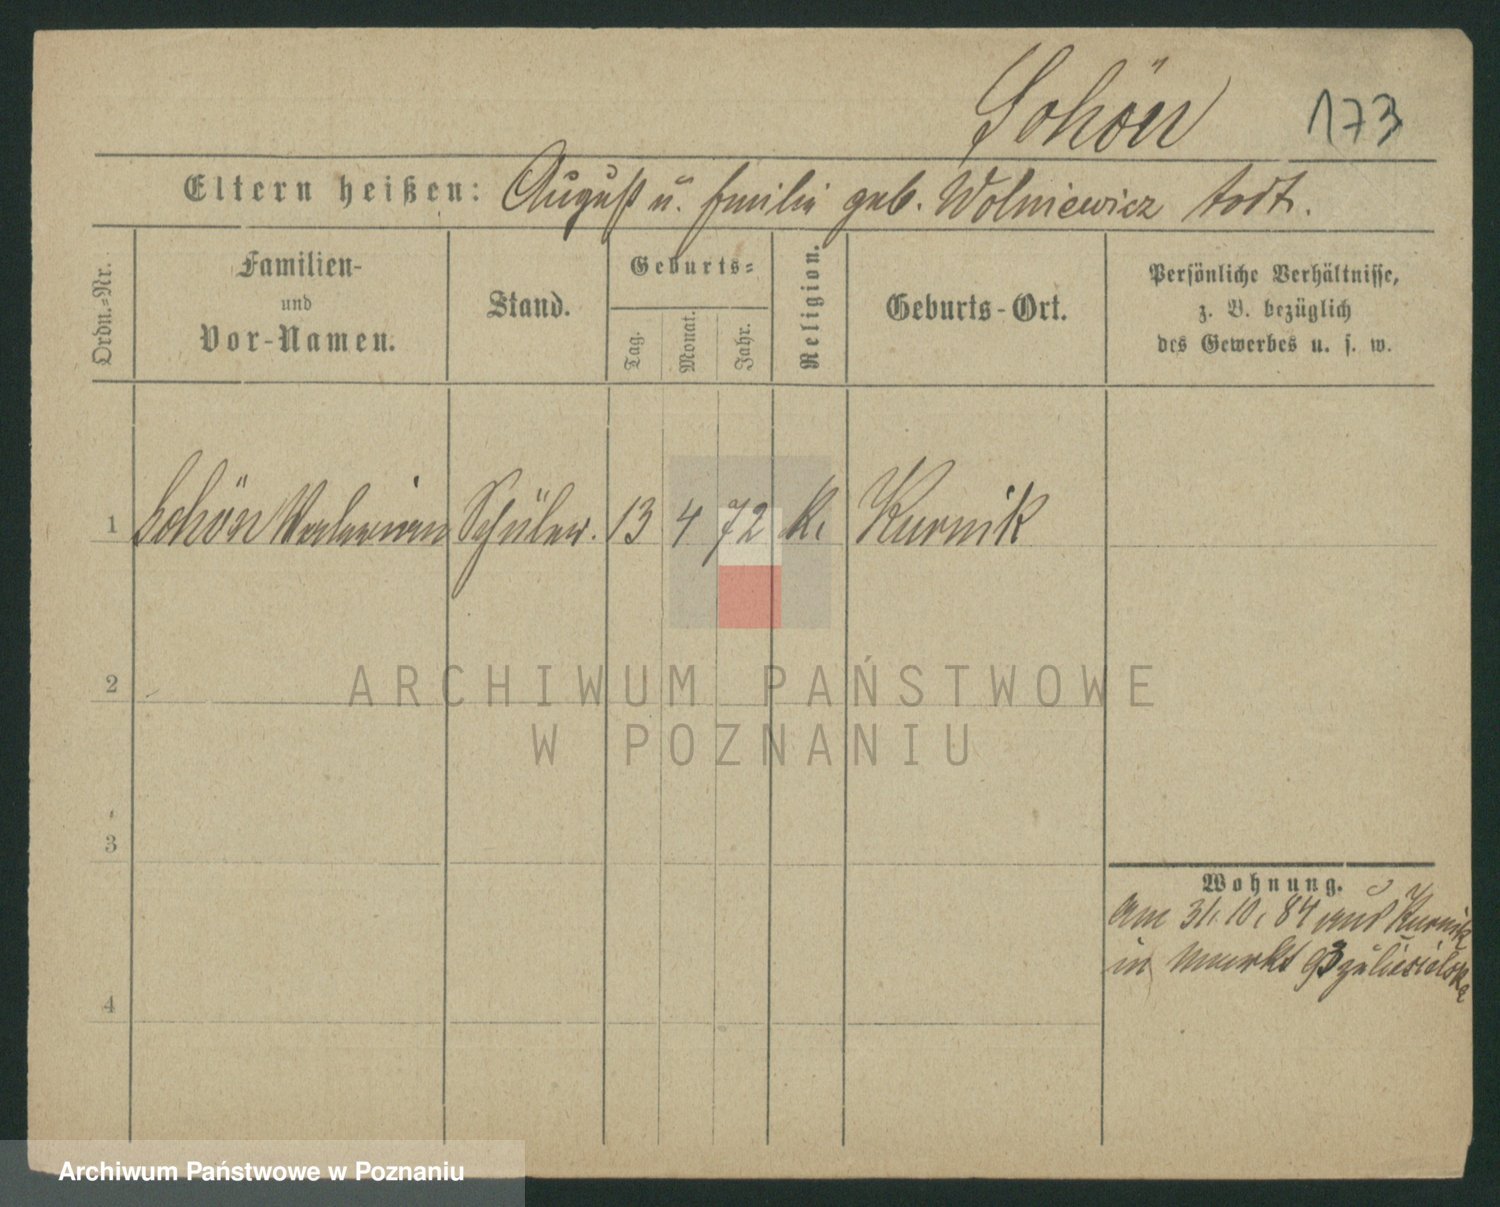 Schön 173
Eltern heißen: August u. Emilie geb. Wolniewicz todt.
Ordn.-Nr.
Familien-
und
Vor-Namen.
Stand.
Geburts-
Tag.
Monat.
Jahr.
Religion.
Geburts-Ort.
Persönliche Verhältnisse,
z. B. bezüglich
des Gewerbes u. s. w.
1 Schön Valerian Schüler. 13 4 72 k. Kurnik
2
3
4
Wohnung.
am 31. 10. 84 aus Kurnik
in Markt 93
ARCHIWUM PAŃSTWOWE
W POZNANIU
Archiwum Państwowe w Poznaniu